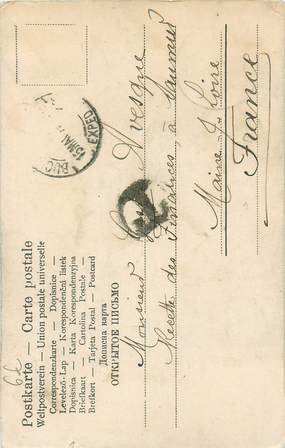 Postkarte — Carte postale
Weltpostverein — Union postale universelle
Correspondenzkarte — Dopisnice —
Levelező-Lap — Korespondenční listek
Dopisnica — Karta Korespondencyjna
Briefkaart — Cartolina Postale —
Brefkort — Tarjeta Postal — Postcard
Дописна карта
ОТКРЫТОЕ ПИСЬМО
BUC
EXPED
15 MAI
Monsieur Avesque
Recette des Finances, à Saumur
Maine & Loire
France